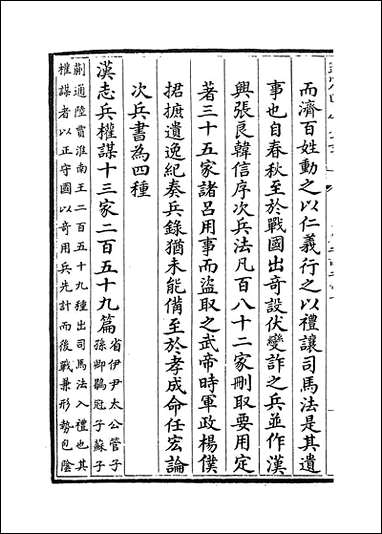 而濟百姓動之以仁義行之以禮讓司馬法是其遺
事也自春秋至於戰國出奇設伏變詐之兵並作漢
興張良韓信序次兵法凡百八十二家刪取要用定
著三十五家諸呂用事而盜取之武帝時軍政楊僕
捃摭遺逸紀奏兵錄猶未能備至於孝成命任宏論
次兵書為四種
漢志兵權謀十三家二百五十九篇省伊尹太公管子
孫卿鶡冠子蘇子
蒯通陸賈淮南王二百五十九種出司馬法入禮也其
權謀者以正守國以奇用兵先計而後戰兼形勢包陰